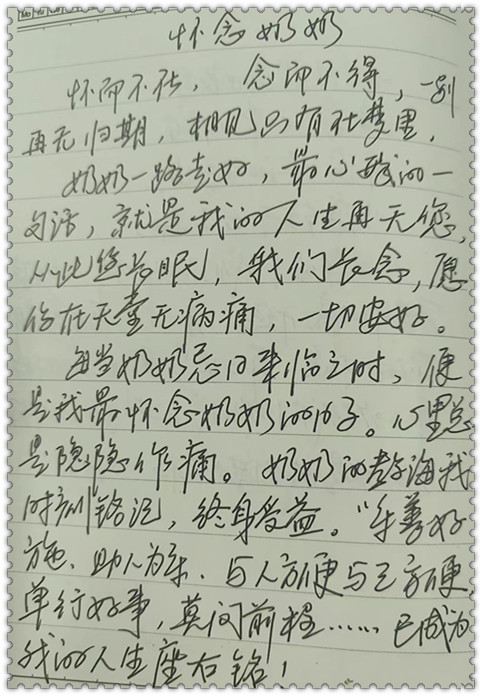 怀念奶奶
怀而不在，念而不得，一别
再无归期，相见只有在梦里，
奶奶一路走好，最心酸的一
句话，就是我的人生再无您，
从此您长眠，我们长念，愿
你在天堂无病痛，一切安好。
每当奶奶忌日来临之时，便
是我最怀念奶奶的日子。心里总
是隐隐作痛。奶奶的教诲我
时刻铭记，终身受益。“乐善好
施、助人为乐、与人方便与己方便，
单行好事，莫问前程……已成为
我的人生座右铭！